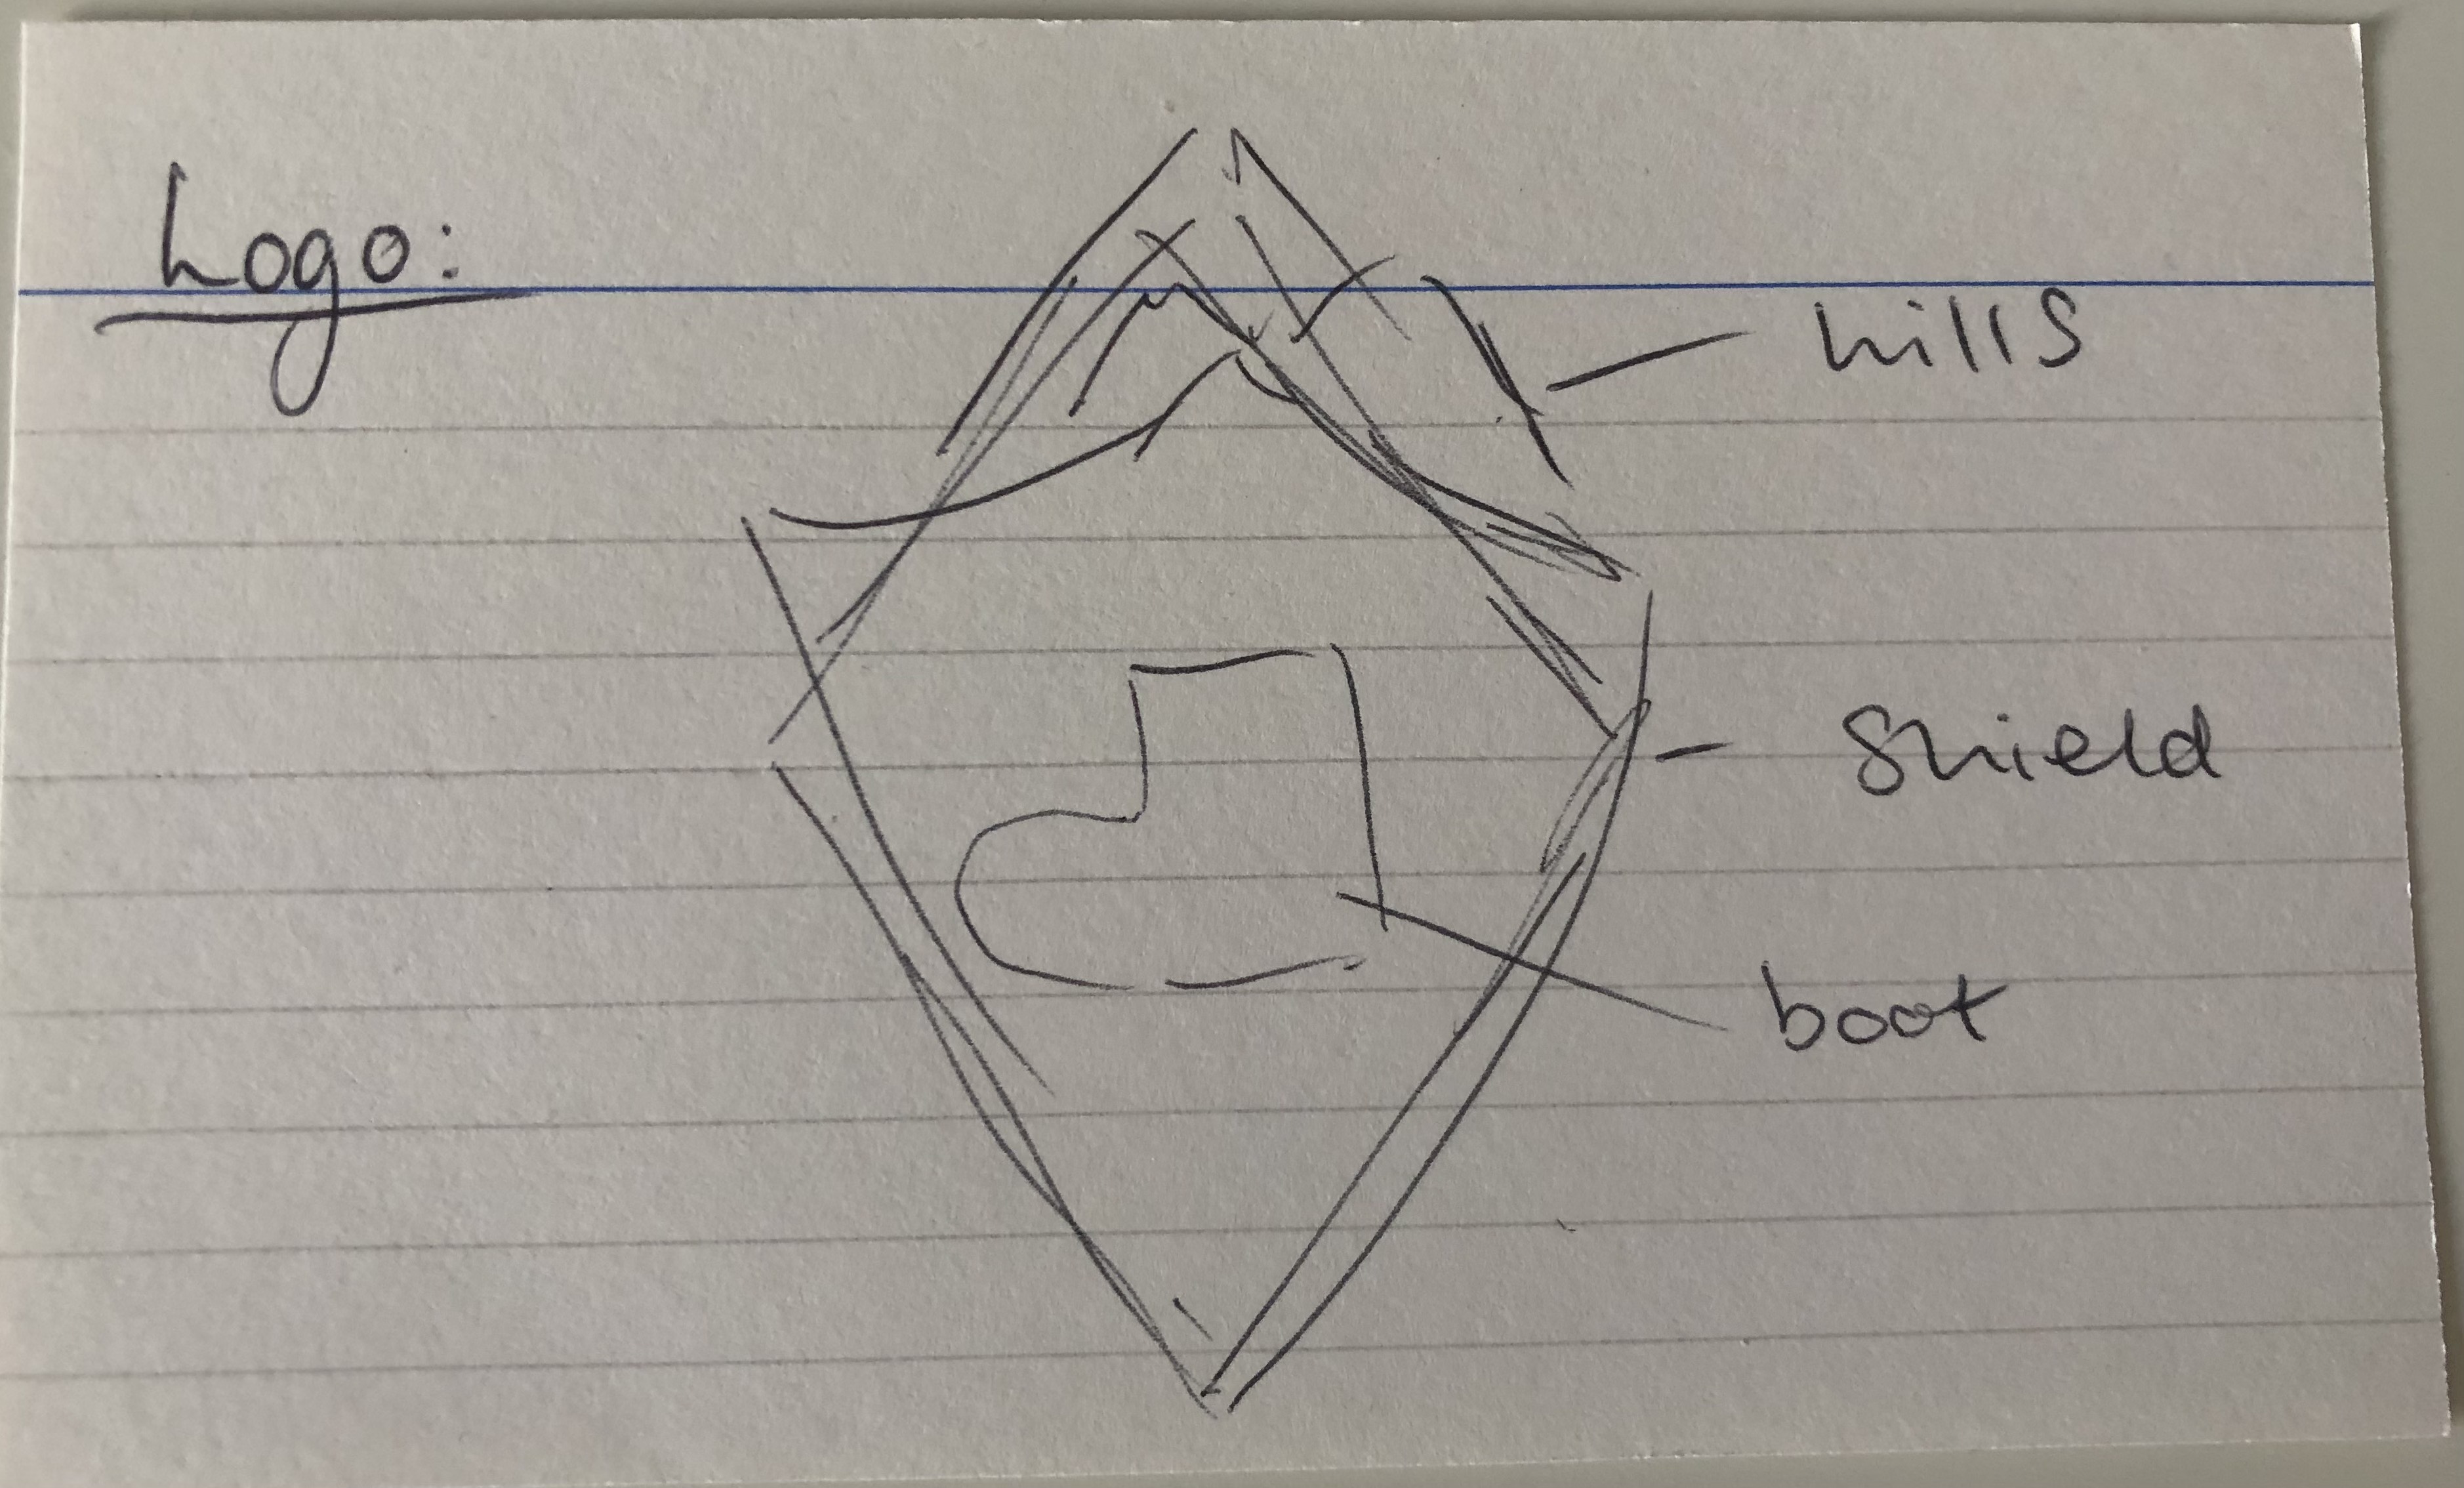 Logo:
hills
Shield
boot